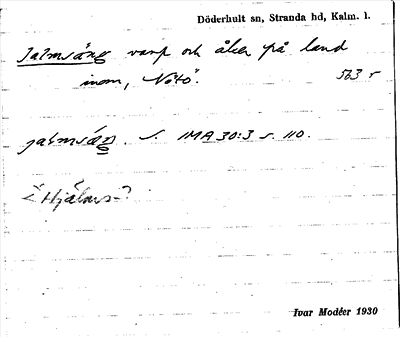 Döderhult sn, Stranda hd, Kalm. l.
Jalmsäng vanp och åker på land
inom, Nötö.
563 r
jalmsäŋ S. IMA 30:3 s. 110.
< Hjälms-?
Ivar Modéer 1930